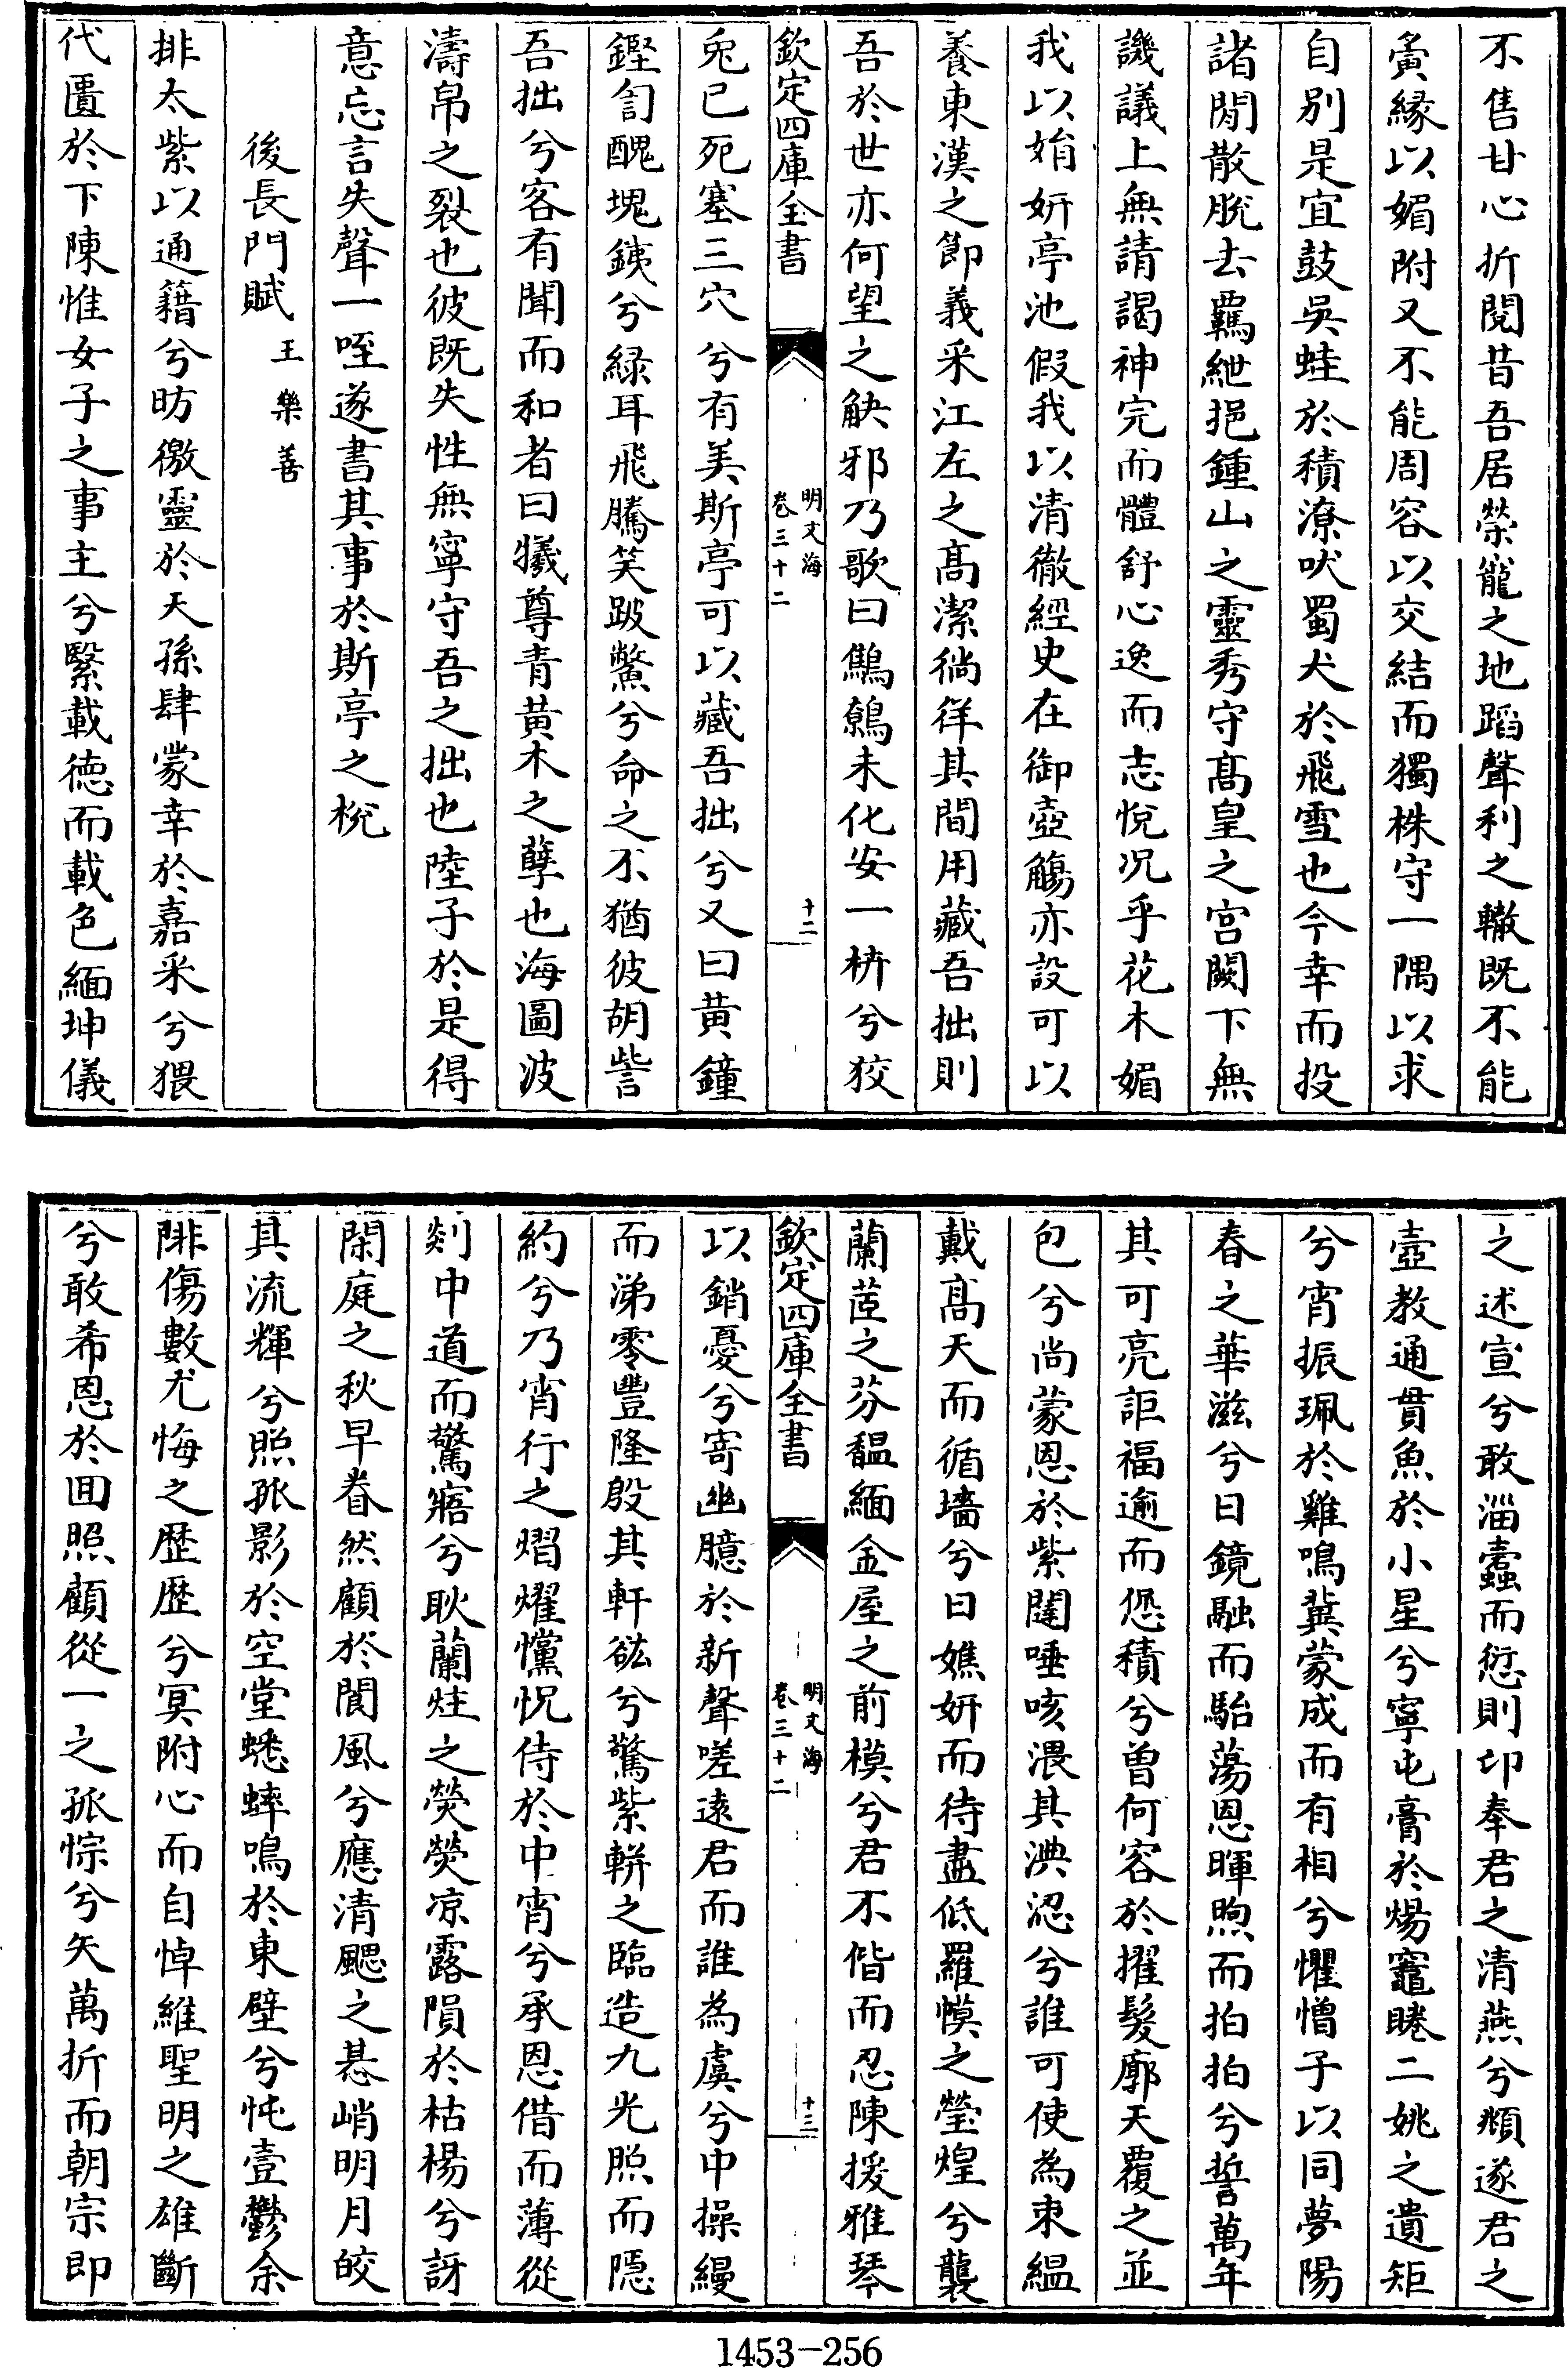 不售甘心折閱昔吾居榮寵之地蹈聲利之轍既不能
夤緣以媚附又不能周容以交結而獨株守一隅以求
自别是宜鼓吳蛙於積潦吠蜀犬於飛雪也今幸而投
諸閒散脫去羈紲挹鍾山之靈秀守髙皇之宫闕下無
譏議上無請謁神完而體舒心逸而志悅况乎花木媚
我以娟妍亭池假我以清徹經史在御壺觴亦設可以
養東漢之節義采江左之髙潔徜徉其間用藏吾拙則
吾於世亦何望之觖邪乃歌曰鷦鷯未化安一枿兮狡
欽定四庫全書
明文海
卷三十二
十二
兔已死塞三穴兮有美斯亭可以藏吾拙兮又曰黄鐘
鏗訇醜塊鉄兮緑耳飛騰笑跛鱉兮命之不猶彼胡訾
吾拙兮客有聞而和者曰犧尊青黄木之孽也海圖波
濤帛之裂也彼既失性無寧守吾之拙也陸子於是得
意忘言失聲一咥遂書其事於斯亭之梲
後長門賦 王樂善
排太紫以通籍兮昉徼靈於天孫肆蒙幸於嘉采兮猥
代匱於下陳惟女子之事主兮繄載徳而載色緬坤儀
之述宣兮敢淄蠹而愆則卬奉君之清燕兮頫遂君之
壼教通貫魚於小星兮寧屯膏於煬竈睠二姚之遺矩
兮宵振珮於雞鳴冀蒙成而有相兮懼憎子以同夢陽
春之華滋兮日鏡融而駘蕩恩暉煦而拍拍兮誓萬年
其可亮詎福逾而㤪積兮曽何容於擢髮廓天覆之並
包兮尚蒙恩於紫闥唾咳溾其淟涊兮誰可使為束緼
戴髙天而循墻兮日嫶妍而待盡低羅幙之瑩煌兮襲
蘭茝之芬馧緬金屋之前模兮君不偕而忍陳援雅琴
欽定四庫全書
明文海
卷三十二
十三
以銷憂兮寄幽臆於新聲嗟遠君而誰為虞兮中操縵
而涕零豐隆殷其軒砿兮驚紫軿之臨造九光照而隠
約兮乃宵行之熠燿戃怳侍於中宵兮承恩借而薄從
剡中道而驚寤兮耿蘭炷之熒熒凉露隕於枯楊兮訝
閑庭之秋早眷然顧於閬風兮應清飀之惎峭明月皎
其流輝兮照孤影於空堂蟋蟀鳴於東壁兮忳壹鬱余
陫傷數尤悔之歴歴兮冥附心而自悼維聖明之雄斷
兮敢希恩於囬照顧從一之孤悰兮矢萬折而朝宗即
1453-256